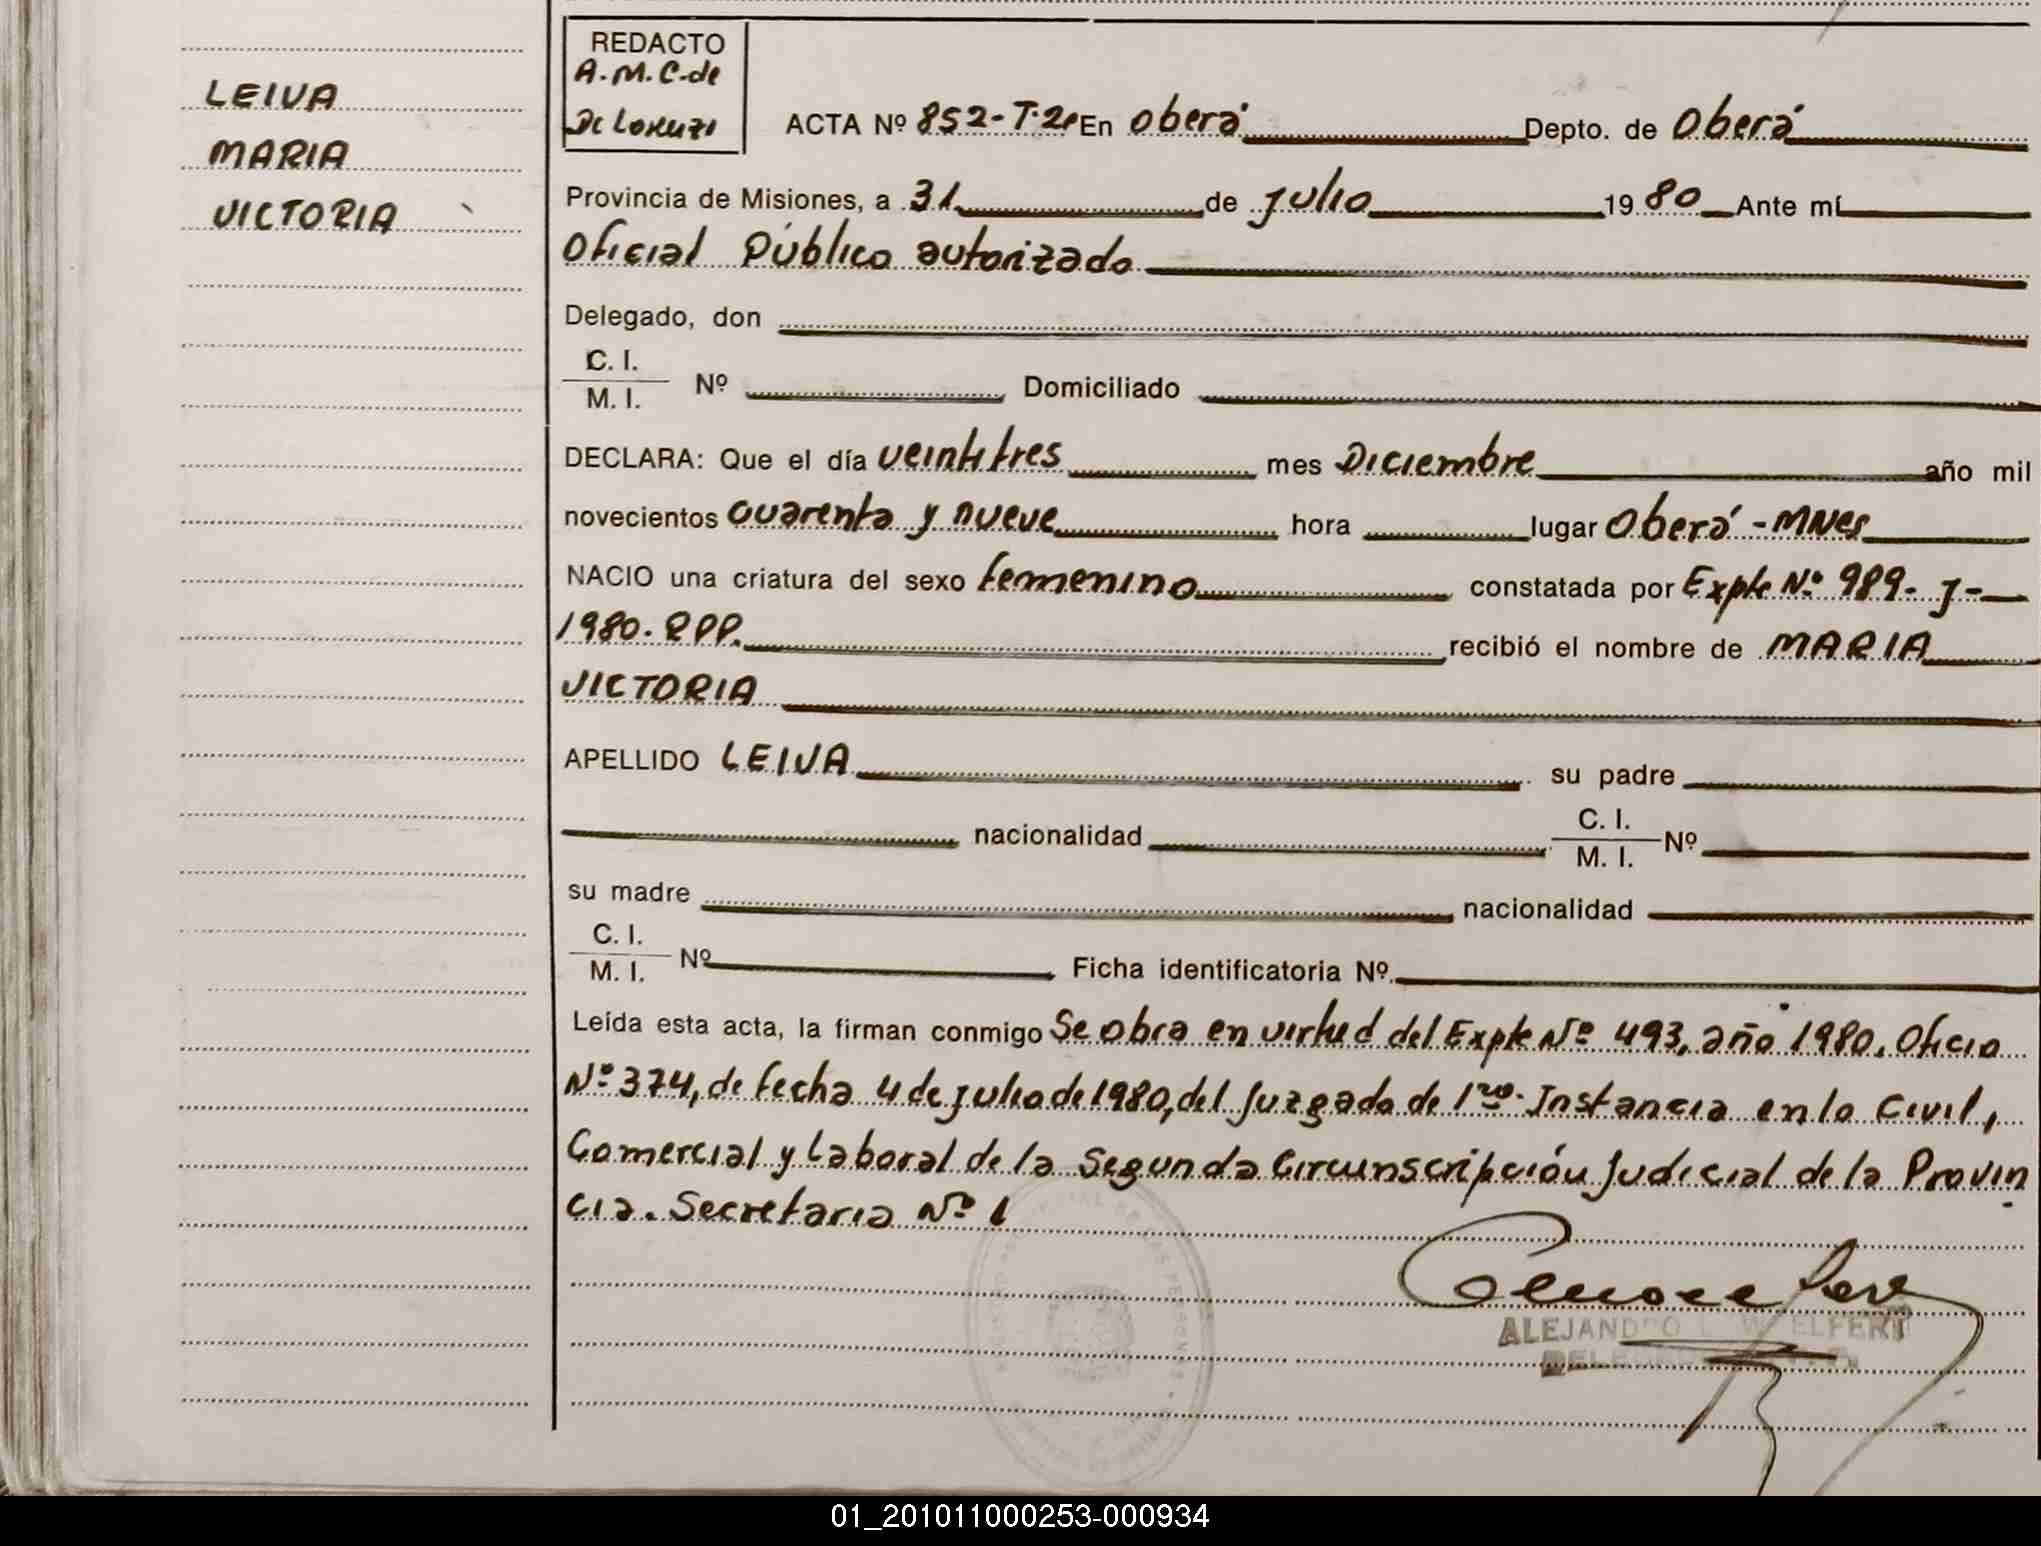 LEIVA
MARIA
VICTORIA
REDACTO
A.M.C. de
De Lorenzi
ACTA Nº 852-T.2º En Oberá Depto. de Oberá
Provincia de Misiones, a 31 de julio 1980 Ante mí
Oficial Público autorizado
Delegado, don
C. I.
M. I. Nº Domiciliado
DECLARA: Que el día veintitres mes Diciembre año mil
novecientos cuarenta y nueve hora lugar Oberá - MNes
NACIO una criatura del sexo femenino constatada por Expte Nº 989- J-
1980. RPP. recibió el nombre de MARIA
VICTORIA
APELLIDO LEIVA su padre
nacionalidad C. I.
M. I. Nº
su madre nacionalidad
C. I.
M. I. Nº Ficha identificatoria Nº
Leída esta acta, la firman conmigo Se obra en virtud del Expte Nº 493, año 1980. Oficio
Nº 374, de fecha 4 de julio de 1980, del Juzgado de 1ra. Instancia en lo Civil,
Comercial y Laboral de la Segunda Circunscripción Judicial de la Provin
cia. Secretaria Nº 1
ALEJANDRO L. WELFERT
01_201011000253-000934